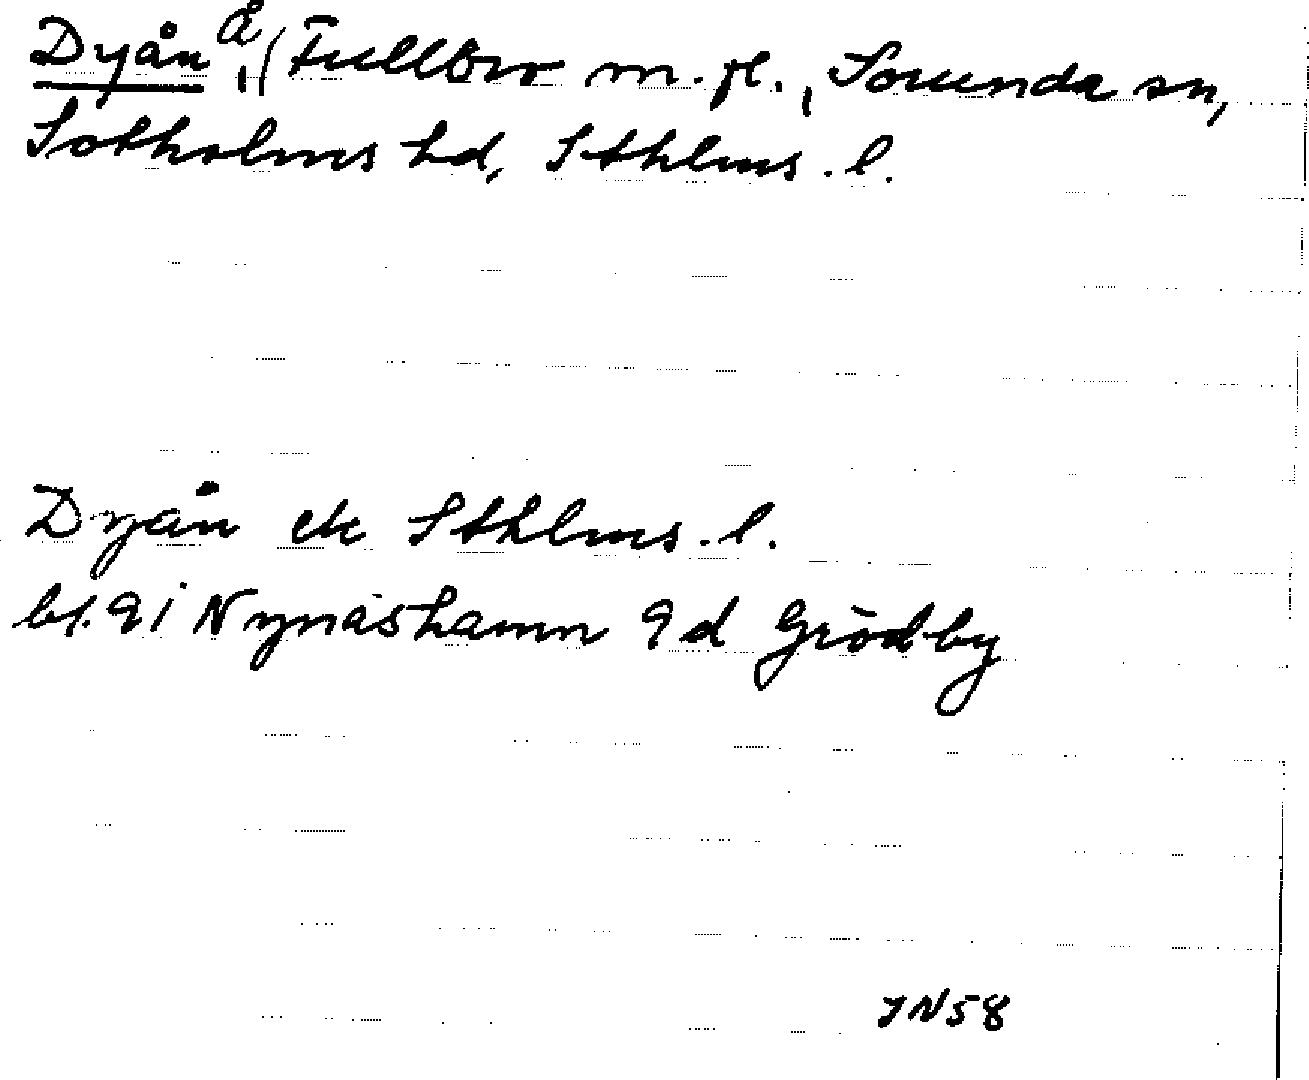 Dyån å, (Fullbro m.fl., Sorunda sn,
Sotholms hd, Sthlms. l.
Dyån ek Sthlms. l.
bl. 9i Nynäshamn 9d Grödby
JN58